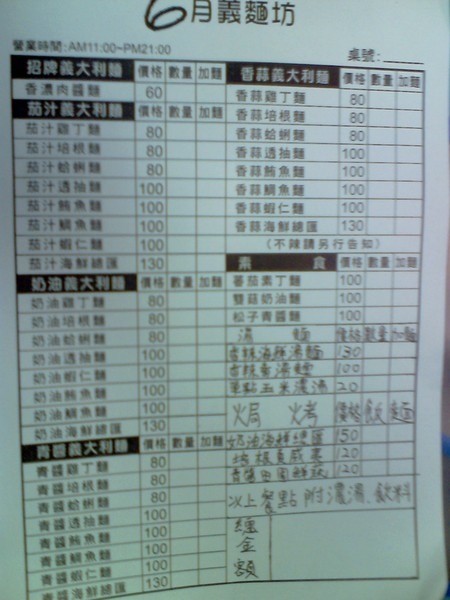 6月義麵坊
營業時間:AM11:00~PM21:00
桌號:
招牌義大利麵 價格 數量 加麵
香濃肉醬麵 60
茄汁義大利麵 價格 數量 加麵
茄汁雞丁麵 80
茄汁培根麵 80
茄汁蛤蜊麵 80
茄汁透抽麵 100
茄汁鮪魚麵 100
茄汁鯛魚麵 100
茄汁蝦仁麵 100
茄汁海鮮總匯 130
奶油義大利麵 價格 數量 加麵
奶油雞丁麵 80
奶油培根麵 80
奶油蛤蜊麵 80
奶油透抽麵 100
奶油蝦仁麵 100
奶油鮪魚麵 100
奶油鯛魚麵 100
奶油海鮮總匯 130
青醬義大利麵 價格 數量 加麵
青醬雞丁麵 80
青醬培根麵 80
青醬蛤蜊麵 80
青醬透抽麵 100
青醬鮪魚麵 100
青醬鯛魚麵 100
青醬蝦仁麵 100
青醬海鮮總匯 130
香蒜義大利麵 價格 數量 加麵
香蒜雞丁麵 80
香蒜培根麵 80
香蒜蛤蜊麵 80
香蒜透抽麵 100
香蒜鮪魚麵 100
香蒜鯛魚麵 100
香蒜蝦仁麵 100
香蒜海鮮總匯 130
(不辣請另行告知)
素 食 價格 數量 加麵
蕃茄素丁麵 100
雙菇奶油麵 100
松子青醬麵 100
湯 麵 價格 數量 加麵
海鮮湯麵 130
湯麵 100
單點玉米濃湯 20
焗 烤 價格 飯 麵
奶油海鮮總匯 150
培根夏威夷 120
青醬田園鮮蔬 120
以上餐點附濃湯、飲料
總
金
額